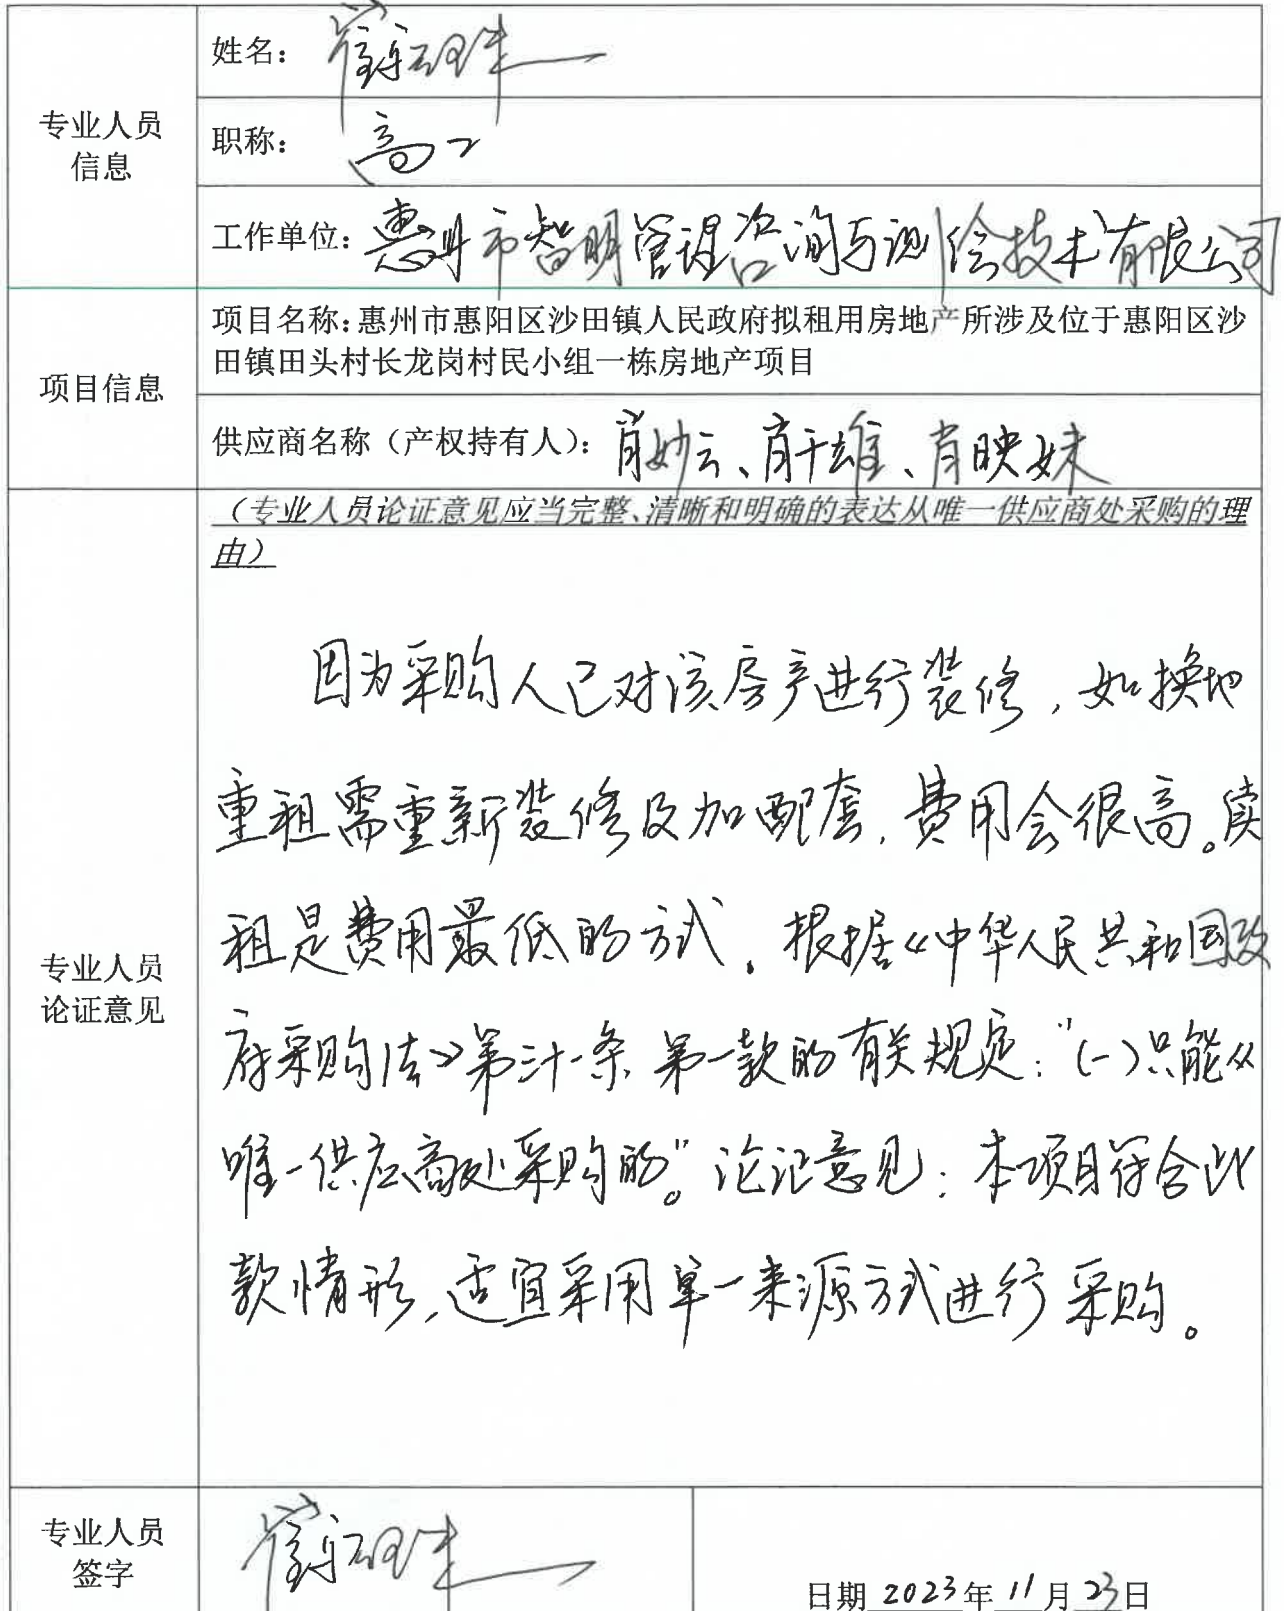 姓名：
专业人员
信息
职称： 高工
工作单位：惠州市智明管理咨询与测绘技术有限公司
项目信息
项目名称：惠州市惠阳区沙田镇人民政府拟租用房地产所涉及位于惠阳区沙
田镇田头村长龙岗村民小组一栋房地产项目
供应商名称（产权持有人）：肖妙云、肖千雄、肖映妹
专业人员
论证意见
（专业人员论证意见应当完整、清晰和明确的表达从唯一供应商处采购的理
由）
因为采购人已对该房产进行装修，如换地
重租需重新装修及加配套，费用会很高。续
租是费用最低的方式。根据《中华人民共和国政
府采购法》第三十一条第一款的有关规定："（一）只能从
唯一供应商处采购的。"论证意见：本项目符合此
款情形，适宜采用单一来源方式进行采购。
专业人员
签字
日期 2023年 11月 23日